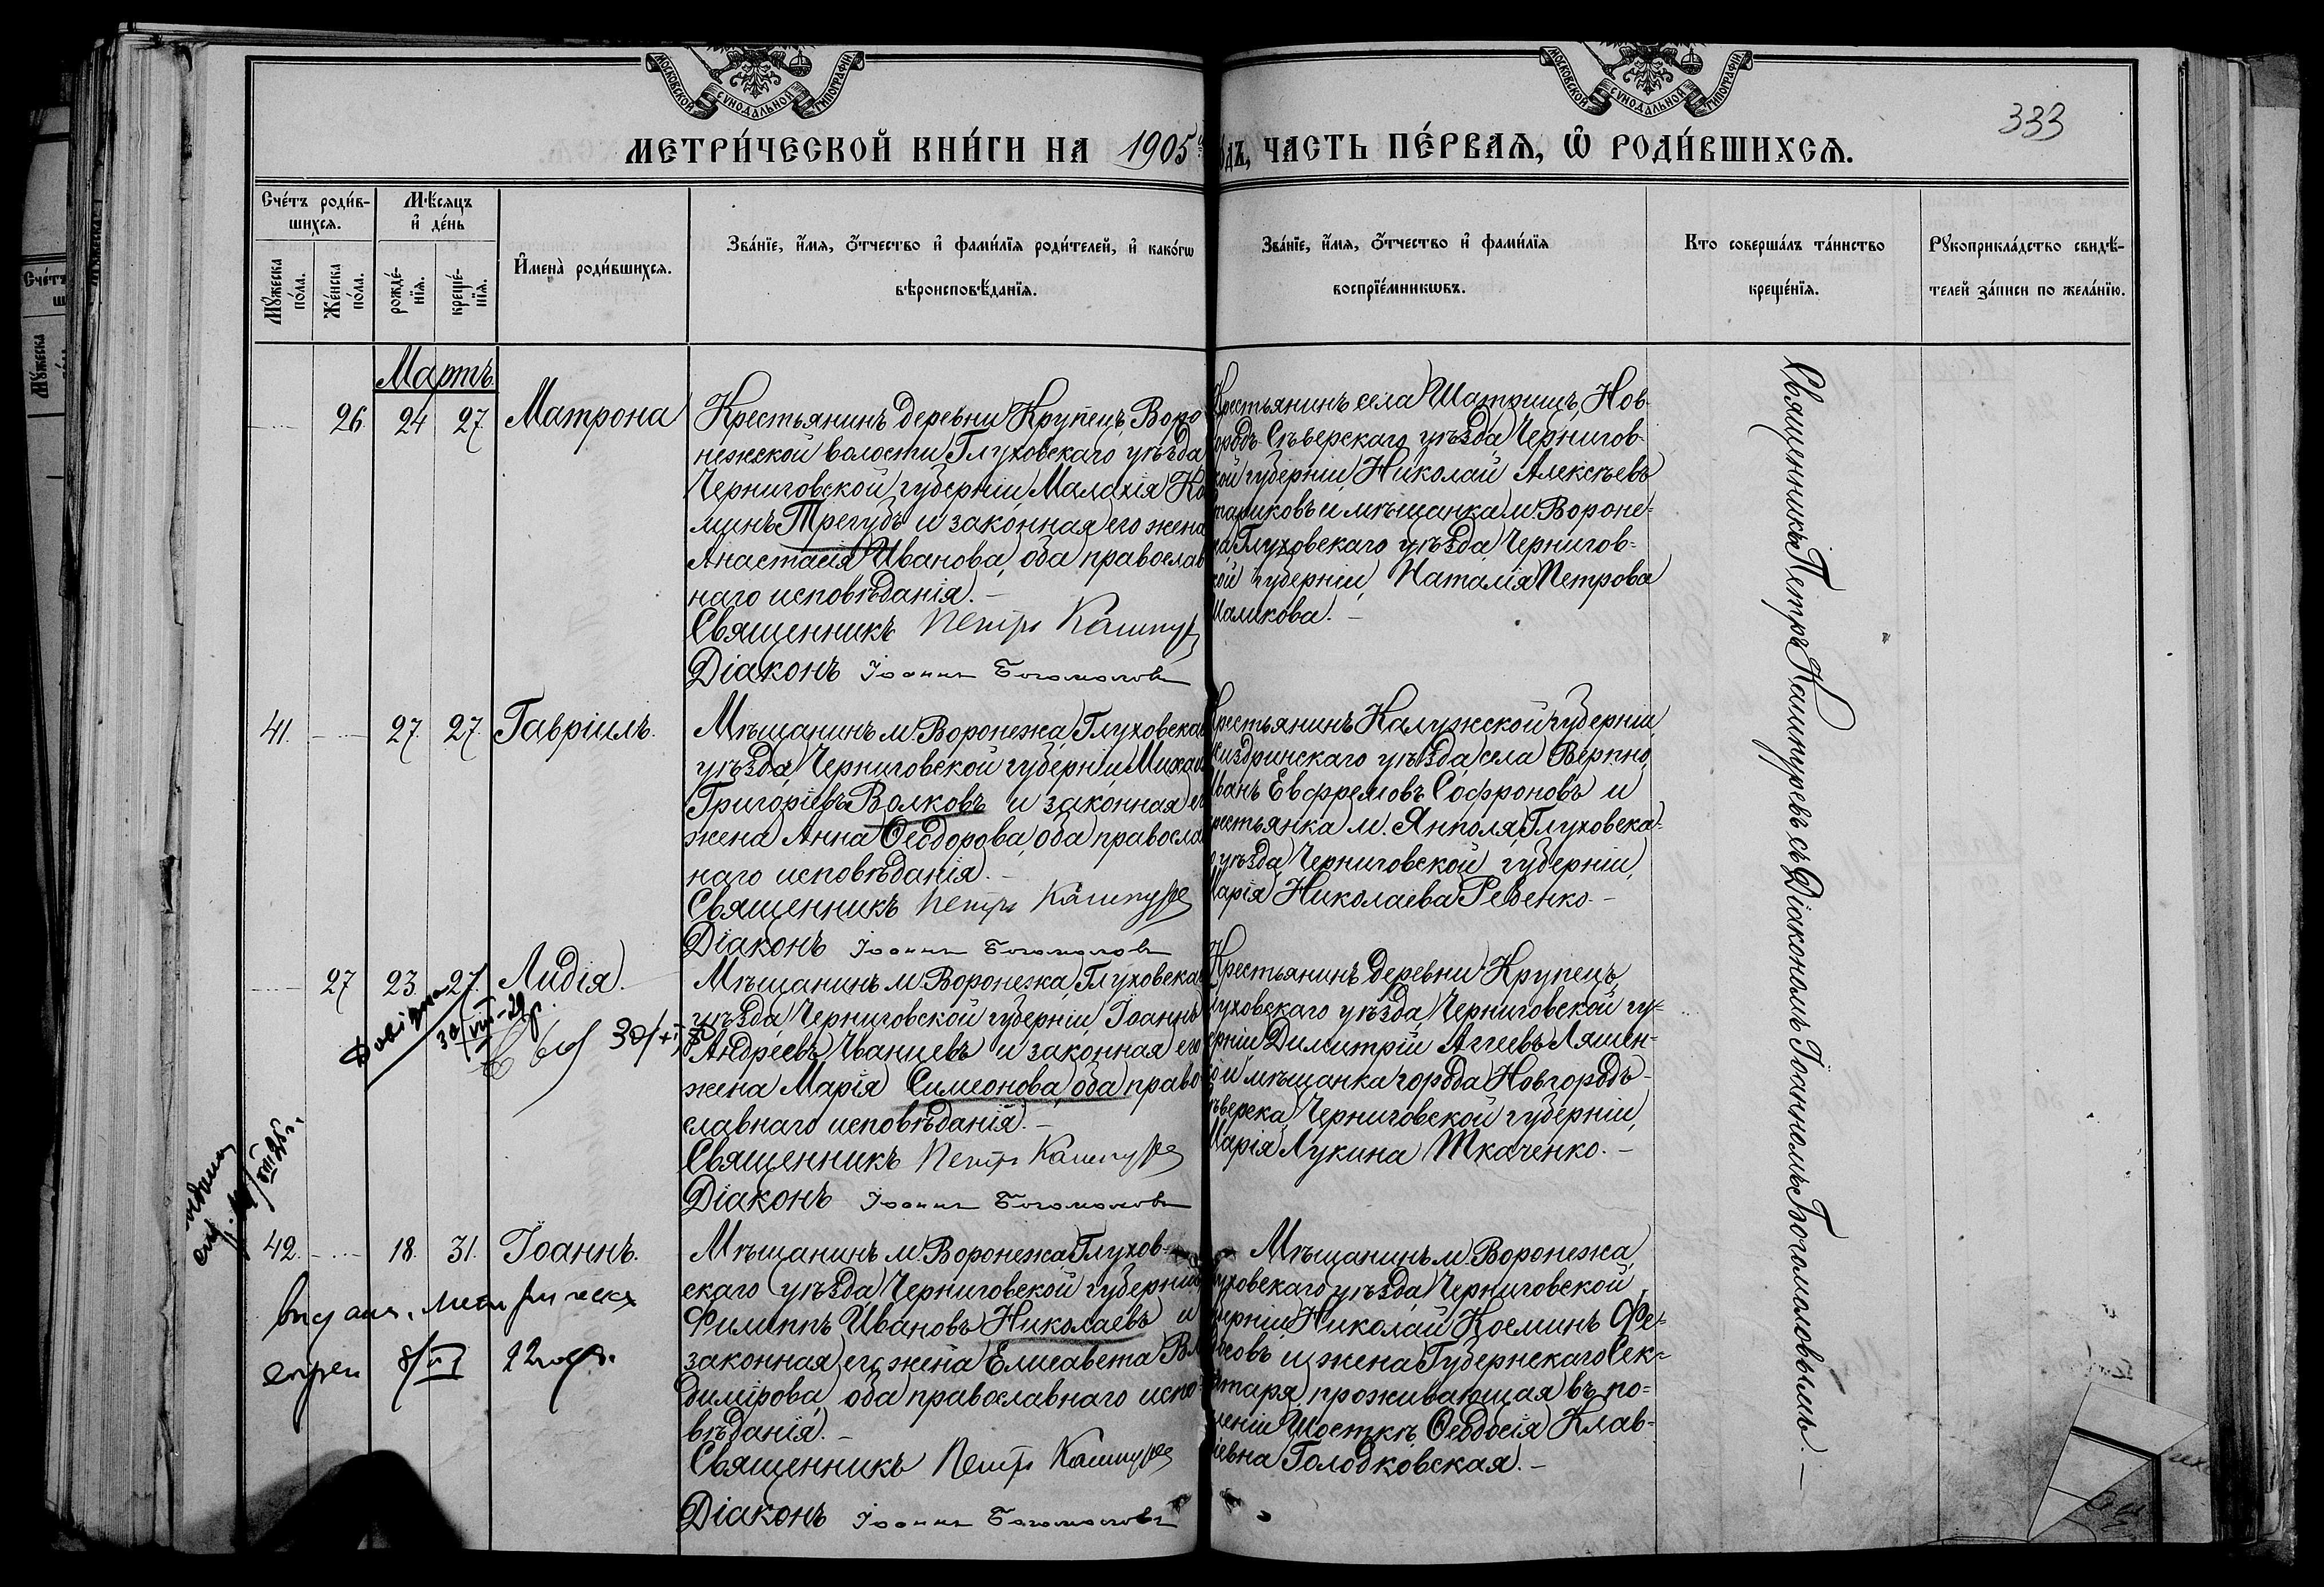 МОСКОВСКОЙ СѴНОДАЛЬНОЙ ТИПОГРАФІИ
МОСКОВСКОЙ СѴНОДАЛЬНОЙ ТИПОГРАФІИ
333
МЕТРИ́ЧЕСКОЙ КНИ́ГИ НА 1905 й
ОДЪ, ЧАСТЬ ПЕ́РВАѦ, Ѡ РОДИ́ВШИХСѦ.
Сче́тъ роди́в-
шихсѧ.
Мѣ́сѧцъ
и҆ де́нь
Мꙋ́жеска
по́ла.
Же́нска
по́ла.
рожде́-
нїѧ.
креще́-
нїѧ.
И҆мена̀ роди́вшихсѧ.
Зва́нїе, и҆́мѧ, ѻ҆́тчество и҆ фами́лїѧ роди́телей, и҆ како́гѡ
вѣроисповѣ́данїѧ.
Зва́нїе, и҆́мѧ, ѻ҆́тчество и҆ фами́лїѧ
воспрїе́мникѡвъ.
Кто соверша́лъ та́инство
креще́нїѧ.
Рꙋкоприкла́дство свидѣ́-
телей за́писи по жела́нїю.
Мартъ
26. 24 27. Матрона
Крестьянинъ деревни Крупецъ, Воро
нежской волости Глуховскаго уѣзда
Черниговской губерніи Малахія Ко
минъ Трегубъ и законная его жена
Анастасія Иванова, оба православ
наго исповѣданія. –
Священникъ Петръ Кашпур
Діаконъ Іоаннъ Богомоловъ
Крестьянинъ села Шатрищъ, Нов-
ородъ-Сѣверскаго уѣзда, Чернигов-
кой губерніи, Николай Алексѣевъ
тариковъ и мѣщанка м. Вороне-
жа Глуховскаго уѣзда Чернигов-
кой губерніи, Наталія Петрова
Маликова. –
41. 27. 27. Гавріилъ.
Мѣщанинъ м. Воронежа, Глуховска
уѣзда, Черниговской губерніи Михаи
Григоріевъ Волковъ и законная е
жена Анна Ѳеодорова, оба правосла
наго исповѣданія. –
Священникъ Петръ Кашпуре
Діаконъ Іоаннъ Богомоловъ
Крестьянинъ Калужской губерніи,
Жиздринскаго уѣзда села Верхно,
Иванъ Евфремовъ Софроновъ и
рестьянка м. Янполя, Глуховска-
о уѣзда, Черниговской губерніи,
Марія Николаева Ревенко. –
27 23 27. Лидія.
Мѣщанинъ м. Воронежа, Глуховска
уѣзда, Черниговской губерніи, Іоаннъ
Андреевъ Иванцевъ и законная его
жена Марія Симеонова, оба право
славнаго исповѣданія. –
Священникъ Петръ Кашпуре
Діаконъ Іоаннъ Богомоловъ
Крестьянинъ деревни Крупецъ,
луховскаго уѣзда, Черниговской гу-
ерніи Димитрій Аггеевъ Ляшен-
ко и мѣщанка города Новгородъ-
ѣверска, Черниговской губерніи,
Марія Лукина Ткаченко. –
42. 18. 31. Іоаннъ.
Мѣщанинъ м. Воронежа, Глухов-
скаго уѣзда, Черниговской губерніи
Филиппъ Ивановъ Николаевъ и
законная его жена Елисавета Вла
димірова, оба православнаго испо-
вѣданія. –
Священникъ Петръ Кашпуре
Діаконъ Іоаннъ Богомоловъ
Мѣщанинъ м. Воронежа,
луховскаго уѣзда, Черниговской
уберніи Николай Косминъ Фе-
осовъ и жена Губернскаго Сек-
етаря, проживающая въ по-
еніи Шосткѣ Ѳеодосія Клав-
іевна Голодковская. –
Священникъ Петръ Кашпуревъ съ Діакономъ Іоанномъ Богомоловымъ. –